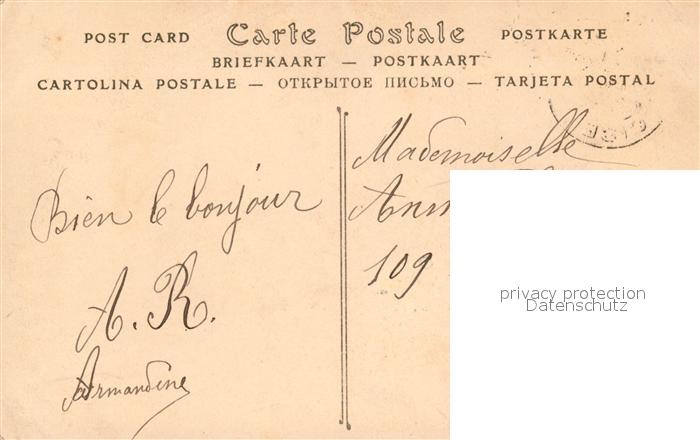 POST CARD Carte Postale POSTKARTE
BRIEFKAART — POSTKAART
CARTOLINA POSTALE — ОТКРЫТОЕ ПИСЬМО — TARJETA POSTAL
Mademoiselle
109
Bien le bonjour
A. R.
Armandine
privacy protection
Datenschutz